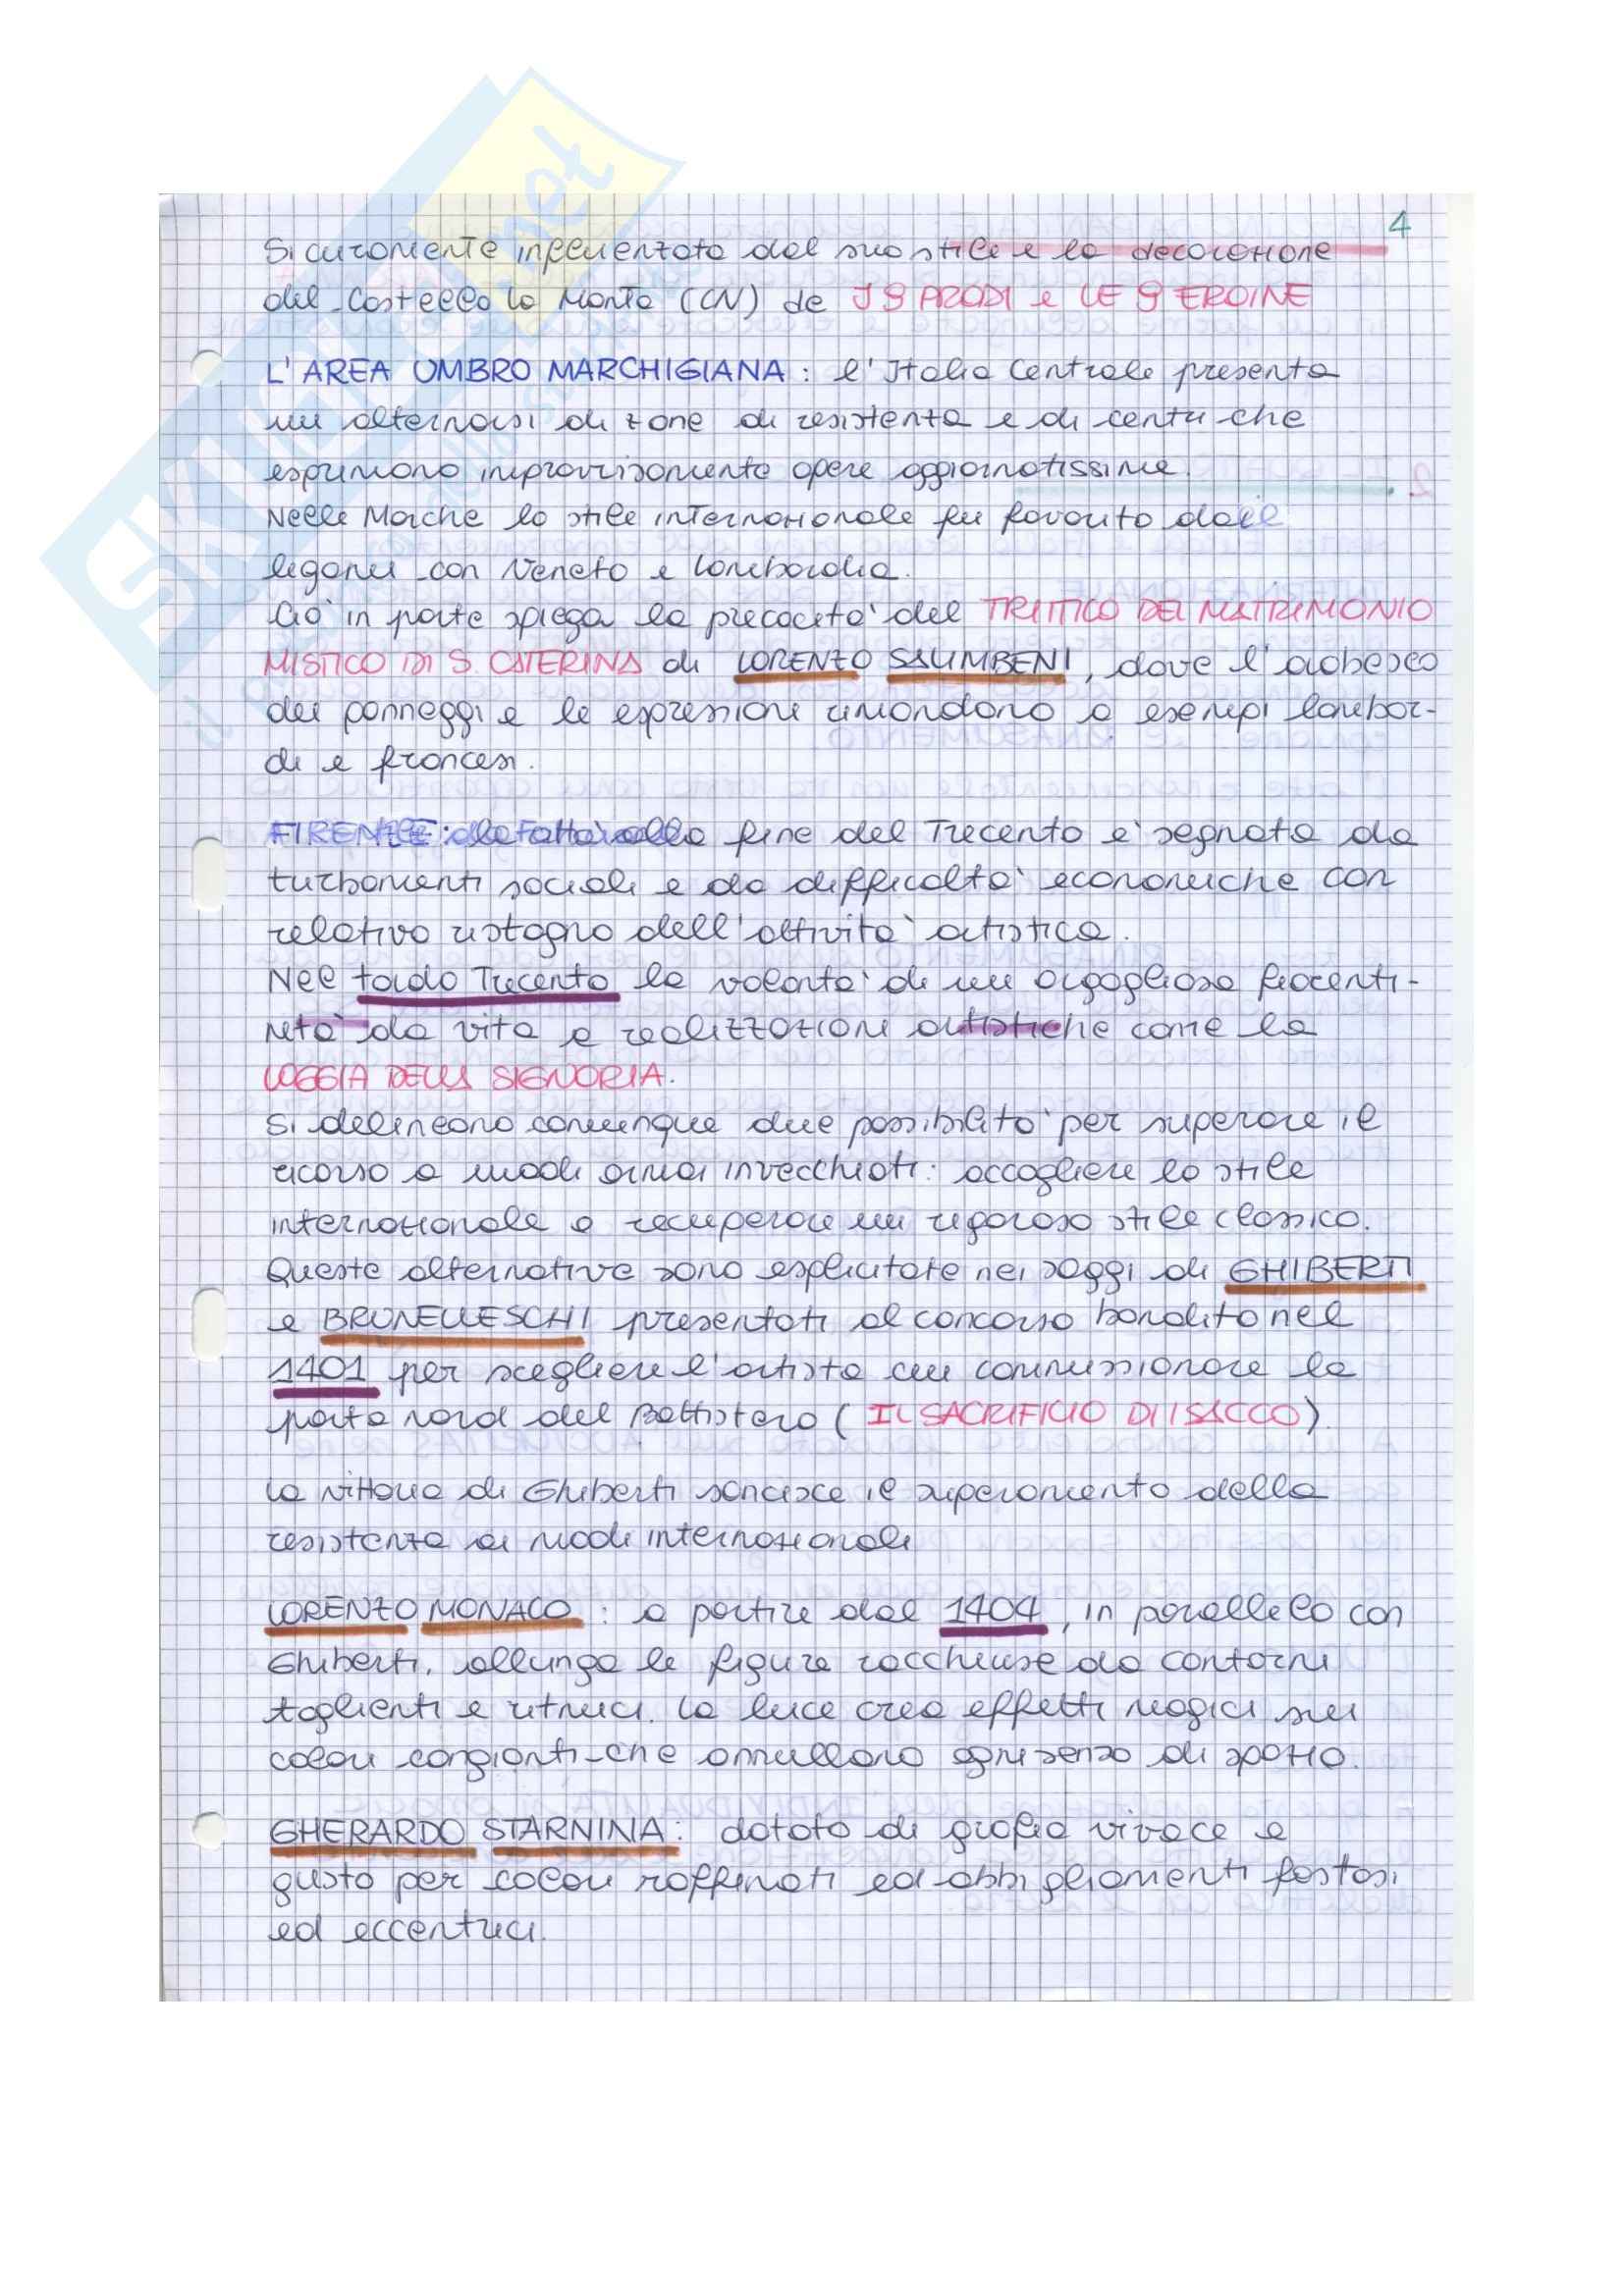 4
Sicuramente influenzata dal suo stile è la decorazione
del Castello La Manta (CN) de I 9 PRODI e LE 9 EROINE
L'AREA UMBRO MARCHIGIANA: l'Italia Centrale presenta
un alternarsi di zone di resistenza e di centri che
esprimono improvvisamente opere aggiornatissime.
Nelle Marche lo stile internazionale fu favorito dai
legami con Veneto e Lombardia.
Ciò in parte spiega la precocità del TRITTICO DEL MATRIMONIO
MISTICO DI S. CATERINA di LORENZO SALIMBENI, dove l'arabesco
dei panneggi e le espressioni rimandano a esempi lombar-
di e francesi.
FIRENZE: alla fine del Trecento è segnata da
turbamenti sociali e da difficoltà economiche con
relativo ristagno dell'attività artistica.
Nel tardo Trecento la volontà di un orgogliosa fiorenti-
nità dà vita a realizzazioni artistiche come la
LOGGIA DELLA SIGNORIA.
Si delineano comunque due possibilità per superare il
ricorso a modi ormai invecchiati: accogliere lo stile
internazionale o recuperare un rigoroso stile classico.
Queste alternative sono esplicitate nei saggi di GHIBERTI
e BRUNELLESCHI presentati al concorso bandito nel
1401 per scegliere l'artista cui commissionare la
porta nord del Battistero (IL SACRIFICIO DI ISACCO).
La vittoria di Ghiberti sancisce il superamento della
resistenza ai modi internazionali
LORENZO MONACO: a partire dal 1404, in parallelo con
Ghiberti, allunga le figure racchiuse da contorni
taglienti e ritmici. La luce crea effetti magici sui
colori cangianti che annullano ogni senso di spazio.
GHERARDO STARNINA: dotato di grafia vivace e
gusto per colori raffinati ed abbigliamenti fastosi
ed eccentrici.